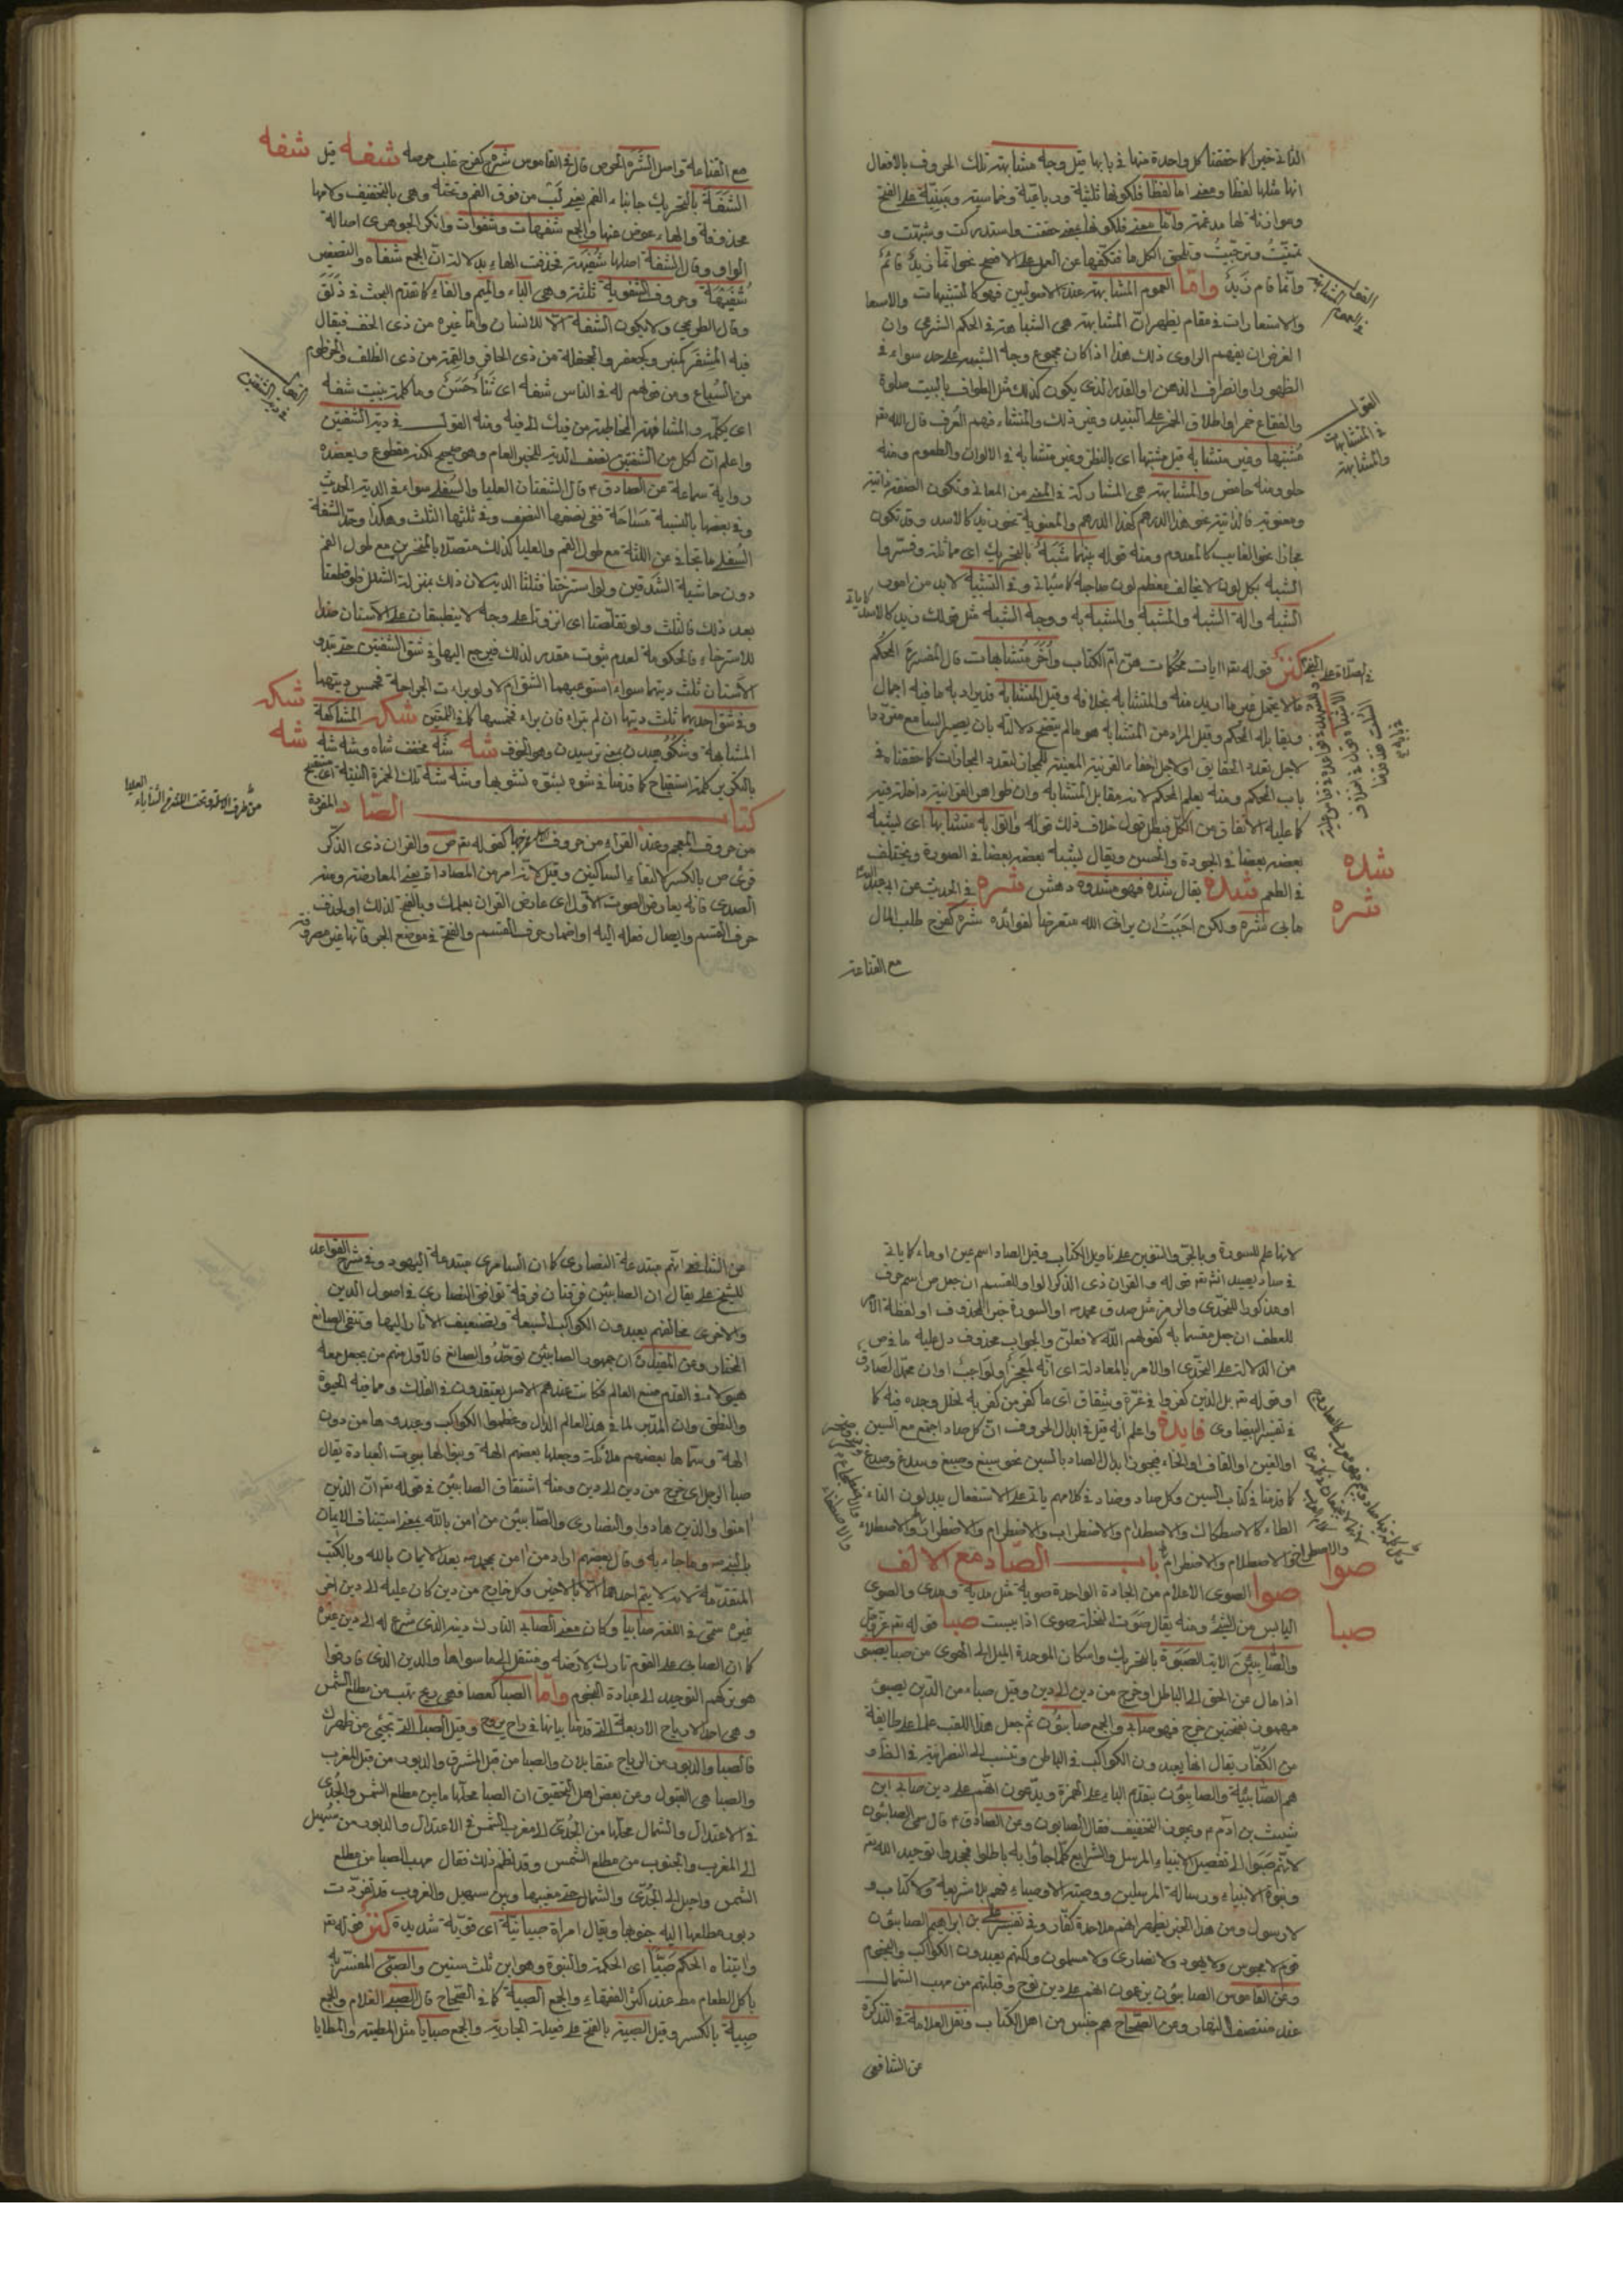 الثانى خبرا كما حققنا كل واحدة منها فى بابها قيل وجه مشابهته تلك الحروف بالافعال
انها مثلها لفظا ومعنى اما لفظا فلكونها ثلثية ورباعية وخماسية ومبنية على الفتح
وموازنة لها مدغمة واما معنى فلكونها بمعنى حققت واستدركت وشبهت و
تمنيت وترجيت وتلحق الكل ما فتكفها عن العمل على الافصح نحو انما زيد قائم
وانما قام زيد واما العموم المشابهة عند الاصوليين فهو كالتشبيهات والاستعا
والاستعارات فى مقام يظهر ان المشابهة هى الشباهة فى الحكم الشرعى وان
الغرض ان يفهم الراوى ذلك هذا اذا كان مجموع وجه الشبه على حد سواء فى
الظهور او انصراف الذهن او القدر الذى يكون كذلك مثل الطواف بالبيت صلوة
والفقاع خمر واطلاق الخمر على النبيذ وغير ذلك والمنشاء فهم العرف قال الله تع
مشتبها وغير متشابه قيل مشتبها اى بالنظر وغير متشابه فى الالوان والطعوم ومنه
حلو ومنه حامض والمشابهة هى المشاركة فى المعنى من المعانى وتكون الصفة ذاتية
ومعنوية فالذاتية نحو هذا الدرهم كهذا الدرهم والمعنوية نحو زيد كالاسد وقد تكون
مجازا نحو الغايب كالمعدوم ومنه قوله بينهما شبه بالتحريك اى مماثلة وفسروا
الشبه بكل لون لا يخالف معظم لون صاحبه كما سياتى وفى التشبيه لا بد من امور
الشبه والة الشبه والمشبه والمشبه به ووجه الشبه مثل قولك زيد كالاسد
كنز قوله تع ايات محكمات هن ام الكتاب واخر متشابهات قال المفسرة المحكم
ما لا يحتمل غير ما اريد منه والمتشابه بخلافه وقيل المتشابه قد يراد به ما فيه اجمال
ويقابله المحكم وقيل المراد من المتشابه هو ما لم يتضح دلالته بان يصير السامع مترددا
لاجل تعدد الحقايق او لاجل خفاء القرينة المعينة للمجاز لتعدد المجازات كما حققناه فى
باب المحكم ومنه يعلم المحكم لانه مقابل المتشابه وان ظواهر القرانية داخلة فيه
كما عليه الاتفاق من الكل فبطل قول خلاف ذلك قوله واتوا به متشابها اى يشبه
بعضه بعضا فى الجودة والحسن ويقال يشبه بعضه بعضا فى الصورة ويختلف
فى الطعم شده يقال شده فهو مشدوه دهش شره فى الحديث عن ابى عبد الله
ما بى شره ولكن احببت ان يرانى الله متعرضا لفوائده شره كفرح طلب المال
مع القناعة
القول
فى المتشابهات
والمشابهة
شده
شره
مع القناعة واصل الشره الحرص قال فى القاموس شره كفرح غلب حرصه شفه قيل
شفه
الشفة بالتحريك جانباء الفم يعنى لب من فوق الفم وتحته وهى بالتخفيف ولامها
محذوفة والهاء عوض عنها والجمع شفهات وشفوات وانكر الجوهرى اصالة
الواو وقال الشفة اصلها شفهة فحذفت الهاء بدلالة ان الجمع شفاه والتصغير
شفيهة وحروف الشفوية ثلثة وهى الباء والميم والفاء كما تقدم البحث فى ذلق
وقال الطريحى ولا يكون الشفة الا للانسان واما غيره من ذى الخف فيقال
فيه المشفر كمنبر وكجعفر والجحفلة من ذى الحافر والمقمة من ذى الظلف والخرطوم
من السباع ومن قولهم له فى الناس شفة اى ثناء حسن وما كلمته ببنت شفه
اى بكلمة والمشافهة المخاطبة من فيك الى فيه ومنه القول فى دية الشفتين
واعلم ان لكل من الشفتين نصف الدية للخبر العام وهو صحيح لكنه مقطوع ويعضده
رواية سماعة عن الصادق ع قال الشفتان العليا والسفلى سواء فى الدية الحديث
وفى بعضها بالنسبة مساحة ففى نصفها النصف وفى ثلثها الثلث وهكذا وحد الشفة
السفلى ما تجافى عن اللثة مع طول الفم والعليا كذلك متصلا بالمنخرين مع طول الفم
دون حاشية الشدقين ولو استرختا فثلثا الدية لان ذلك بمنزلة الشلل فلو قطعتا
بعد ذلك فالثلث ولو تقلصتا اى انزوتا على وجه لا ينطبقان على الاسنان ضد
للاسترخاء فالحكومة لعدم ثبوت مقدر لذلك فيرجع اليها فى شق الشفتين حتى تبدو
الاسنان ثلث ديتهما سواء استوعبهما الشق ام لا ولو برات الجراحة فخمس ديتهما
وفى شق احديهما ثلث ديتها ان لم تبراء فان براء فخمسها كما فى اللمعتين شكه المشاكهة
شكه
المشابهة وشكوهيدن بمعنى ترسيدن وهو الخوف شه شه مخفف شاه وشه شه
شه
بالتكرير كلمة استقباح كما قدمنا فى شوه
كتاب الصاد المفردة
من حروف المعجم وعند القراء من حروف كقوله تع ص والقران ذى الذكر
قرئ ص بالكسر لالتقاء الساكنين وقيل لانه امر من المصاداة بمعنى المعارضة ومنه
الصدى فانه يعارض الصوت الاول اى عارض القران بعملك وبالفتح لذلك او لحذف
حرف القسم وايصال فعله اليه او اضمار حرف القسم والفتح فى موضع الجر فانها غير مصروفة
لانها علم للسورة وبالجر والتنوين على تاويل الكتاب وقيل الصاد اسم عين او ماء كما ياتى
فى صاد يصيد انش تع قوله والقران ذى الذكر الواو للقسم ان جعل ص اسم حرف
او مذكورا للتحدى والرمز مثل صدق محمد ص او السورة خبر المحذوف او لفظة الامر
للعطف ان جعل مقسما به كقولهم الله لافعلن والجواب محذوف دل عليه ما فى ص
من الدلالة على التحدى او الامر بالمعادلة اى انه لمعجز او لواجب او ان محمد الصادق
او قوله تع بل الذين كفروا فى عزة وشقاق اى ما كفر من كفر به لخلل وجده فيه كما
فى تفسير البيضاوى فايدة واعلم انه قيل فى ابدال الحروف ان كل صاد اجتمع مع السين
او الغين او القاف او الخاء فيجوز ابدال الصاد بالسين نحو سبغ وصبغ وسدغ وصدغ
كما قدمنا فى كتاب السين وكل صاد وضاد فى كلامهم ياتى على الاستفعال يبدلون التاء
الطاء كالاصطكاك والاصطدام والاضطراب والاضطرام والاضطرار والاصطلاء
والاصطلام والاضطرام باب الصاد مع الالف
صوا
صوا الصوى الاعلام من الحجارة الواحدة صوية مثل مدية ومدى والصوى
اليابس من الشئ ومنه يقال صوت النخلة صوى اذا يبست صبا قوله تع عز وجل
صبا
والصابئين الاية الصبوة بالتحريك واسكان الموحدة الميل الى الهوى من صبا يصبو
اذا مال عن الحق الى الباطل او خرج من دين الى دين وقيل صباء من الذين يصبئ
مهموز بفتحتين خرج فهو صابئ والجمع صابئون ثم جعل هذا اللقب علما على طايفة
من الكفار يقال انها يعبدون الكواكب فى الباطن وتنسب الى النصرانية فى الظاهر
هم الصابئة والصابئون بتقدم الباء على الهمزة ويدعون انهم على دين صابئ ابن
شيث بن ادم ع ويجوز التخفيف فقال الصابون وعن الصادق ع قال سمى الصابئون
لانهم صبوا الى تعطيل الانبياء والرسل والشرايع كلما جاؤا به باطلا فجحدوا توحيد الله تع
ونبوة الانبياء ورسالة المرسلين ووصية الاوصياء فهم بلا شريعة ولا كتاب و
لا رسول ومن هذا الخبر يظهر انهم ملاحدة كفار وفى تفسير على بن ابراهيم الصابئون
قوم لا مجوس ولا يهود ولا نصارى ولا مسلمون ولكنهم يعبدون الكواكب والنجوم
وعن القاموس الصابئون يزعمون انهم على دين نوح وقبلتهم من مهب الشمال
عند منتصف النهار وعن الصحاح هم جنس من اهل الكتاب ونقل العلامة فى التذكرة
عن الشافعى
عن الشافعى انهم مبتدعة النصارى كما ان السامرى مبتدعة اليهود وفى شرح القواعد
للشيخ على يقال ان الصابئين فرقتان فرقة توافق النصارى فى اصول الدين
والاخرى تخالفهم يعبدون الكواكب السبعة وتضيف الاثار اليها وتنفى الصانع
المختار وعن المفيد ان جمهور الصابئين توحد والصانع فالاول منهم من يجعل معه
هيولا فى القدم صنع العالم فكانت عندهم الاصل يعتقدون فى الفلك وما فيه الحيوة
والنطق وان المدبر لما فى هذا العالم الدال وعظموا الكواكب وعبدوها من دون
الهة وسماها بعضهم ملائكة وجعلها بعضهم الهة وبنوا لها بيوت العبادة يقال
صبا الرجل اى خرج من دين الى دين ومنه اشتقاق الصابئين فى قوله تع ان الذين
امنوا والذين هادوا والنصارى والصابئين من امن بالله بمعنى استيناف الايمان
بالنبى ص وما جاء به وقال بعضهم اراد من امن بمحمد ص بعد الايمان بالله وبالكتب
المتقدمة لانه لا يتم احدهما الا بالاخر وكل خارج من دين كان عليه الى دين اخر
غيره سمى فى اللغة صابئا وكان معنى الصابئ التارك دينه الذى شرع له الى دين غيره
كما ان الصابى على القوم تارك لارضه ومنتقل الى ما سواها والدين الذى فارقوا
هو تركهم التوحيد الى عبادة النجوم واما الصبا كعصا فهى ريح تهب من مطلع الشمس
وهى احد الارياح الاربعة التى قدمنا بيانها فى راح يروح وقيل الصبا التى تجئى من ظهرك
فالصبا والدبور من الرياح متقابلان والصبا من قبل المشرق والدبور من قبل المغرب
والصبا هى القبول وعن بعض اهل التحقيق ان الصبا محلها ما بين مطلع الشمس والجدى
فى الاعتدال والشمال محلها من الجدى الى مغرب الشمس فى الاعتدال والدبور من سهيل
الى المغرب والجنوب من مطلع الشمس وقد نظم ذلك فقال مهب الصبا من مطلع
الشمس واصل الى الجدى والشمال حتى مغيبها وبين سهيل والغروب قد تفردت
دبور مطلعها اليه جنوبها ويقال امراة صبيانية اى قوية شديدة كنز قوله تع
واتيناه الحكم صبيا اى الحكمة والنبوة وهو ابن ثلث سنين والصبى المفسر به
ياكل الطعام مط عند اكثر الفقهاء والجمع الصبية كما فى الصحاح قال الصبى الغلام والجمع
صبية بالكسر وقيل الصبية بالفتح على فعيلة الجارية والجمع صبايا مثل المطية والمطايا